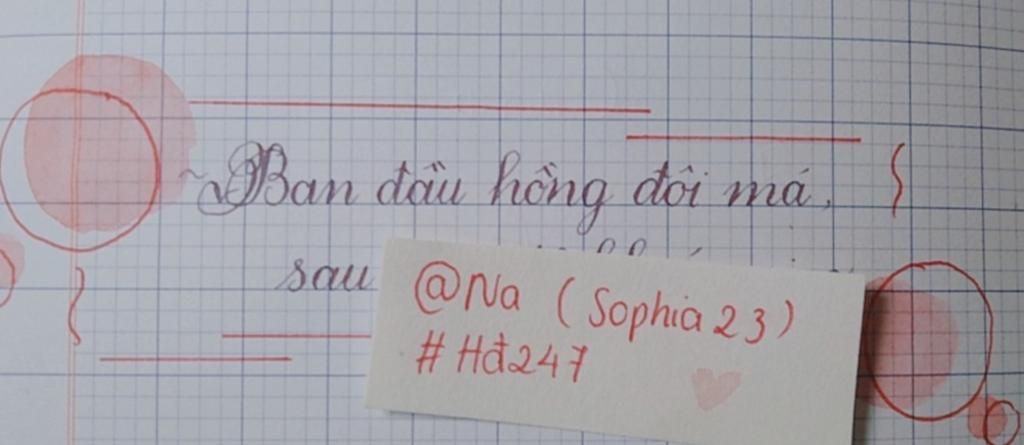 ~Ban đầu hồng đôi má,
sau
@Na (Sophia 23)
#Hđ247